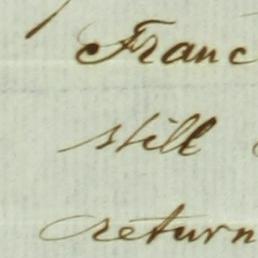 Franc
still
return